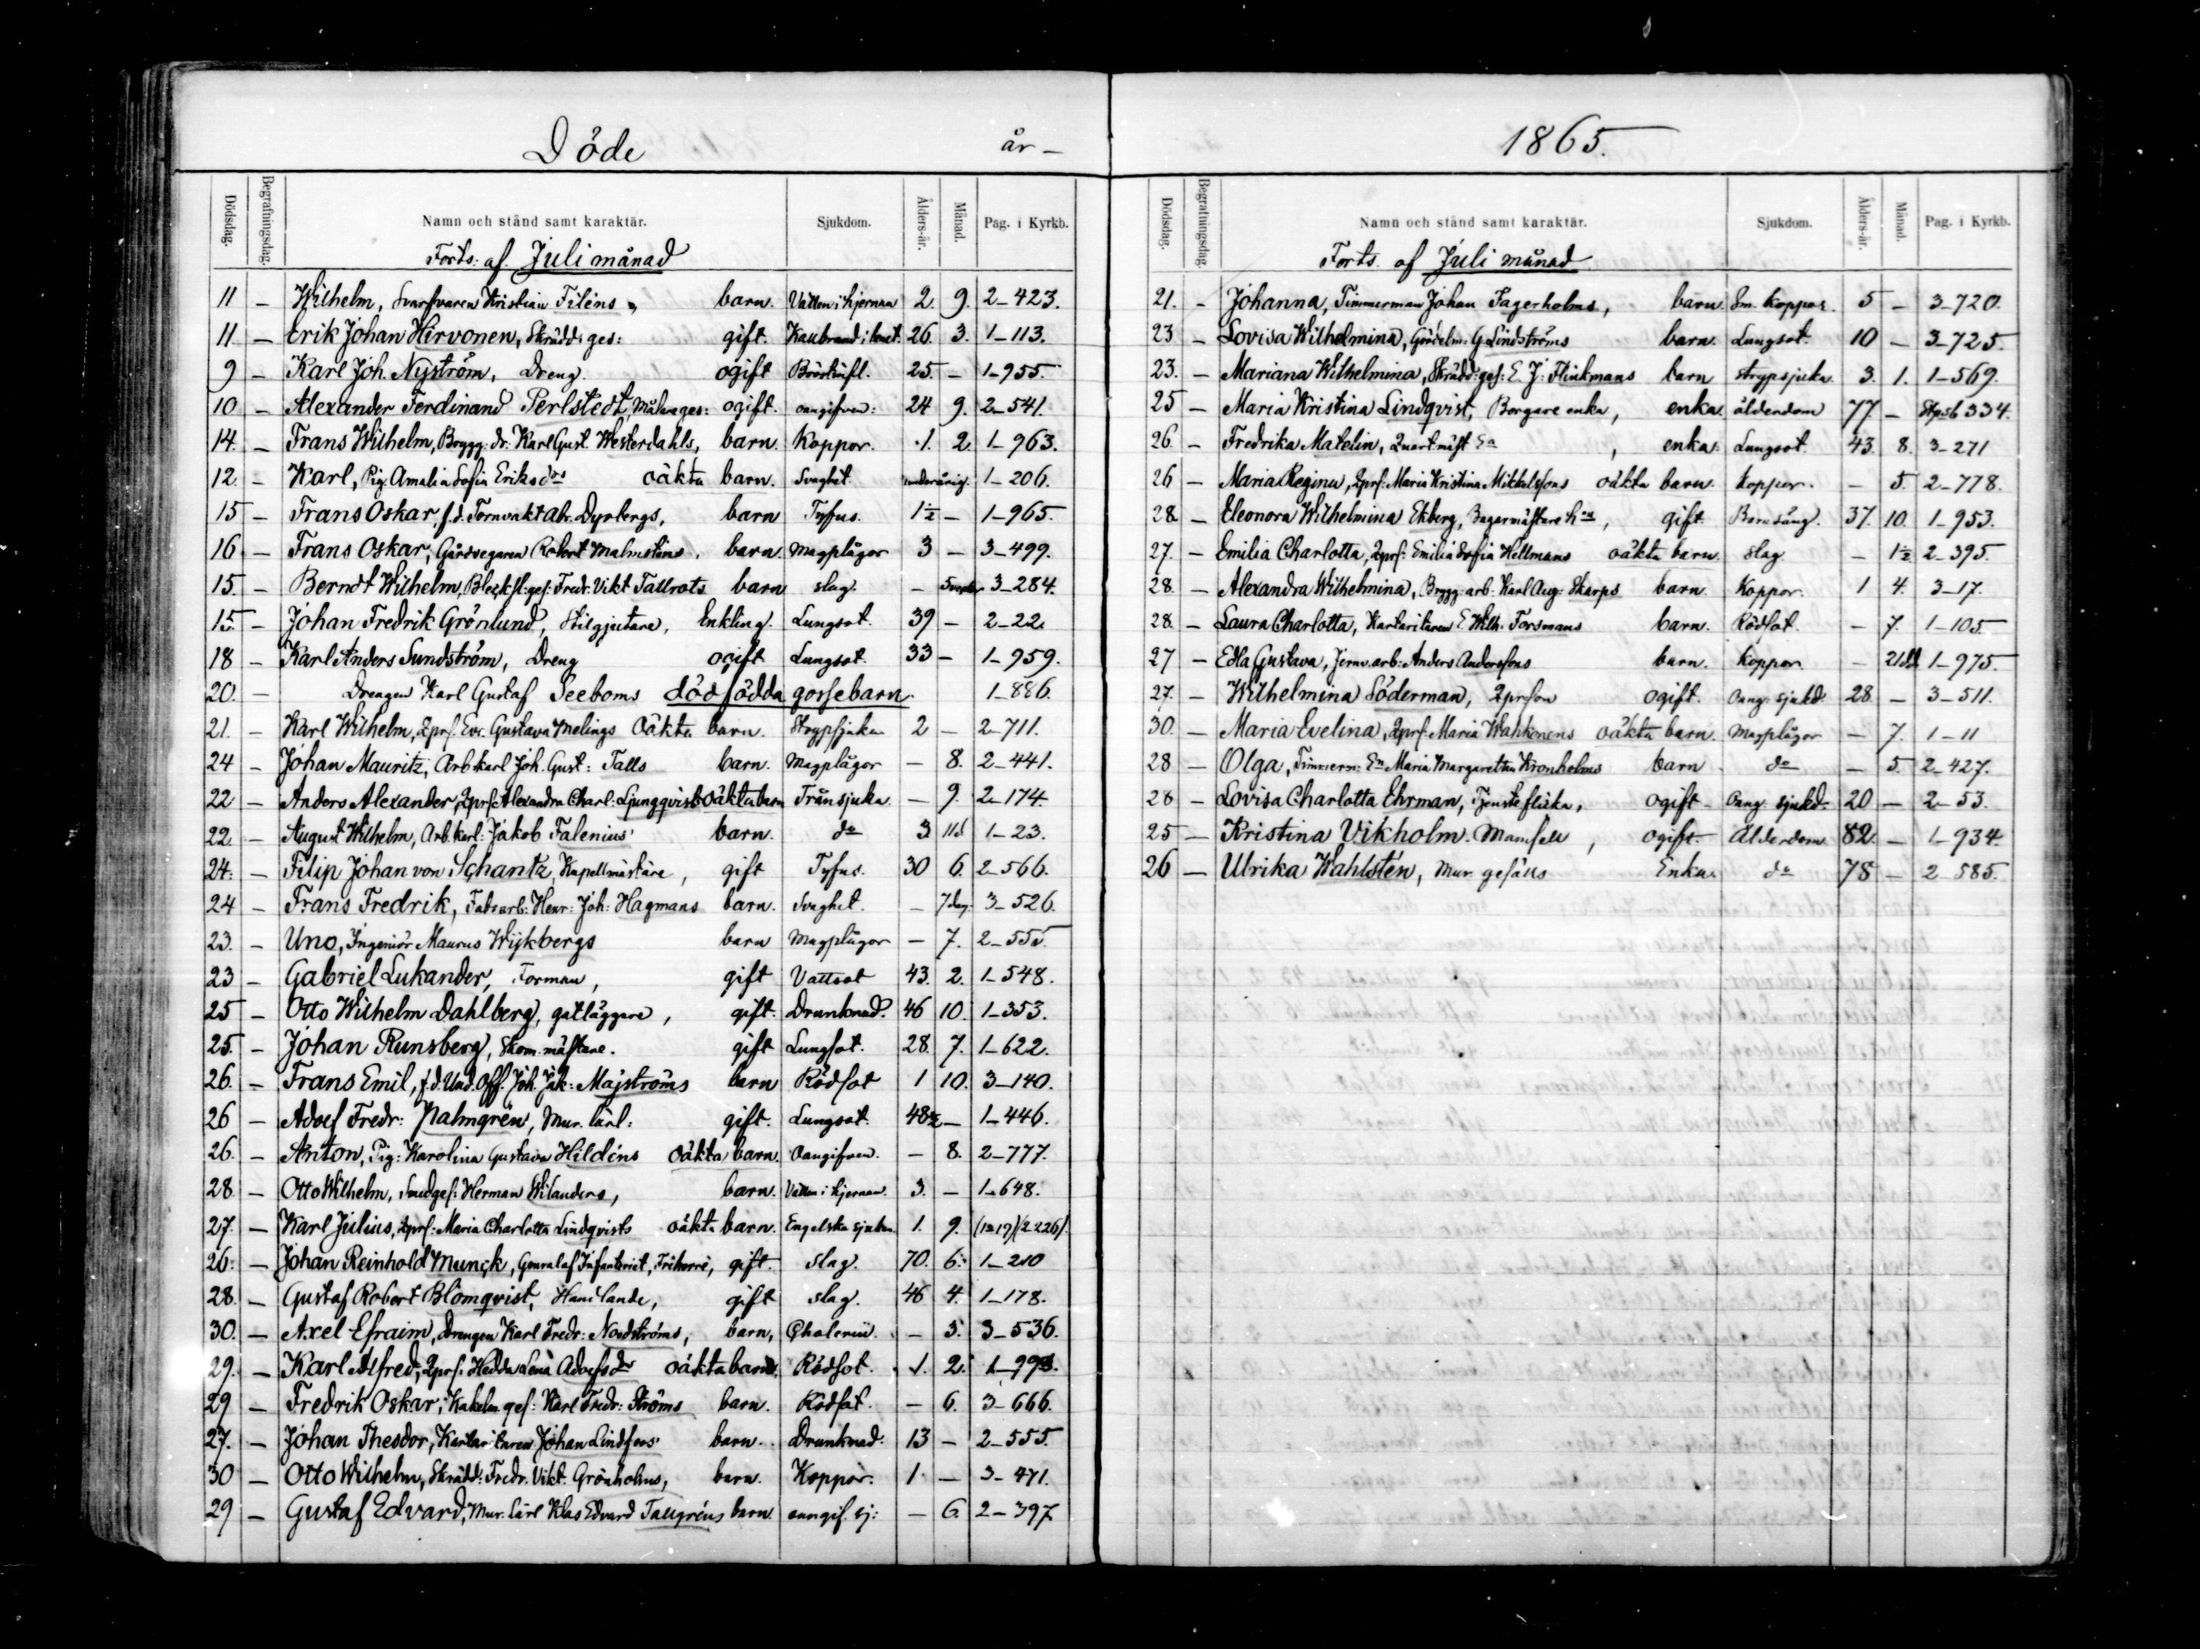 Döde år –
Dödsdag. Begrafningsdag. Namn och stånd samt karaktär. Sjukdom. Ålders-år. Månad. Pag. i Kyrkb.
Forts: af Juli månad
11 – Wilhelm, Svarfvaren Kristian Filéns barn. Vatten i hjernan 2. 9. 2–423.
11. – Erik Johan Hirvonen, Skrädd: ges: gift. Kallbrand i 26. 3. 1–113.
9 – Karl Joh. Nyström, Dreng. ogift Bröstinfl. 25. – 1–955.
10 – Alexander Ferdinand Perlstedt, Målareges: ogift. oangifven: 24 9. 2–541.
14. – Frans Wilhelm, Brygg: dr: Karl Gust. Westerdahls, barn. Koppor. 1. 2 1–963.
12. – Karl, Pig. Amalia Sofia Eriksdrs oäkta barn. Svaghet underårig. 1–206.
15 – Frans Oskar, f.d. Tornvakt Abr. Dyrbergs, barn Tyfus. 1½ – 1–965.
16 – Frans Oskar, Gårdsegaren Robert Malmsténs, barn. Magplågor 3 – 3–499.
15. – Berndt Wilhelm, Blecksl: ges: Fredr. Vikt Tallrots barn slag. – 3–284.
15. – Johan Fredrik Grönlund, Stilgjutare, Enkling. Lungsot. 39 – 2–22.
18 – Karl Anders Sundström, Dreng ogift Lungsot. 33 – 1–959.
20. – Drengen Karl Gustaf Seeboms dödfödda gossebarn 1–886.
21. – Karl Wilhelm, Qprs. Eva Gustava Melings Oäkta barn. Strypsjukan 2 – 2–711.
24 – Johan Mauritz, Arb.karl Joh. Gust: Talls barn. Magplågor – 8. 2–441.
22. – Anders Alexander, Qprs. Alexandra Charl: Ljungqvists oäkta barn Trånsjuka. – 9. 2–174.
22. – August Wilhelm, Arb. karl: Jakob Falenius' barn. do 3 11d 1–23.
24. – Filip Johan von Schantz, Kapellmästare, gift Tyfus. 30 6. 2–566.
24 – Frans Fredrik, Fabr.arb: Henr: Joh: Hagmans barn. Svaghet. – 7 dag. 3–526.
23. – Uno, Ingeniör Maurus Wijkbergs barn Magplågor – 7. 2–555.
23 – Gabriel Lukander, Forman, gift Vattsot 43. 2. 1–548.
25 – Otto Wilhelm Dahlberg, gatläggare, gift. Drunknad. 46 10. 1–353.
25. – Johan Runsberg, Skom. mästare. gift Lungsot. 28. 7. 1–622.
26. – Frans Emil, f.d. Und. Off. Joh. Jak: Majströms barn Rödsot 1 10. 3–140.
26 – Adolf Fredr: Palmgrén, Mur. lärl: gift. Lungsot. 48½ – 1–446.
26. – Anton, Pig: Karolina Gustava Hildéns oäkta barn. Oangifven. – 8. 2–777.
28. – Otto Wilhelm, Smedges: Herman Wilanders, barn. Vatten i hjernan. 3. – 1–648.
27. – Karl Julius, Qprs: Maria Charlotta Lindqvists oäkta barn. Engelska sjukan 1. 9.
26. – Johan Reinhold Munck, General af Infanteriet, Friherre, gift. slag. 70. 6. 1–210
28. – Gustaf Robert Blomqvist, Handlande, gift slag. 46 4. 1–178.
30. – Axel Efraim, Drengen Karl Fredr: Nordströms, barn, Cholerin. – 3. 3–536.
29. – Karl Alfred, Qprs: Hedda Lena Adolfsdr oäkta barn. Rödsot. 1. 2. 1–993.
29 – Fredrik Oskar, Kakelm. ges: Karl Fredr: Ströms barn. Rödsot. – 6. 3–666.
27. – Johan Theodor, Karduanren Johan Lindfors' barn. Drunknad. 13 – 2–555.
30 – Otto Wilhelm, Skrädd: Fredr. Vikt. Grönholms, barn. Koppor. 1. – 3–471.
29 – Gustaf Edvard, Mur. lärl Klas Edvard Tallgréns barn oangif. sj: – 6. 2–397
1865.
Dödsdag. Begrafningsdag. Namn och stånd samt karaktär. Sjukdom. Ålders-år. Månad. Pag. i Kyrkb.
Forts. af Juli månad
21. – Johanna, Timmerman Johan Fagerholms, barn Sm. koppor. 5 – 3–720.
23 – Lovisa Wilhelmina, G. Lindströms barn. Lungsot. 10 – 3–725.
23. – Mariana Wilhelmina, Skrädd: ges: E. J: Flinkmans barn strypsjuka 3. 1. 1–569.
25 – Maria Kristina Lindqvist, Borgare enka, enka ålderdom 77 – 334.
26. – Fredrika Matelin, Quartmäst Ea, enka. Lungsot. 43. 8. 3–271
26 – Maria Regina, Qprs: Maria Kristina Mikkelssons oäkta barn. Koppor. – 5. 2–778.
28 – Eleonora Wilhelmina Ekberg, Bagarmästare hu, gift Barnsäng. 37. 10. 1–953.
27. – Emilia Charlotta, Qprs: Emilia Sofia Hellmans oäkta barn slag – 1½ 2–395.
28. – Alexandra Wilhelmina, Brygg: arb: Karl Aug: Skarps barn. Koppor. 1 4. 3–17.
28. – Laura Charlotta, Kartaritaren E Wilh. Forsmans barn. Rödsot. – 7. 1–105.
27 – Edla Gustava, Jernv. arb: Anders Anderssons barn. Koppor – 21d 1–975.
27. – Wilhelmina Söderman, Qprson ogift. Oang. sjukd. 28 – 3–511.
30. – Maria Evelina, Qprs: Maria Wahkonens oäkta barn. Magplågor – 7. 1–11
28 – Olga, Timmerm: En Maria Margaretha Kronholms barn do – 5. 2–427.
28 – Lovisa Charlotta Ehrman, Tjensteflicka, ogift Oang. sjukd. 20 – 2–53.
25 – Kristina Vikholm. Mamsell, ogift. Ålderdom 82. – 1–934.
26 – Ulrika Wahlstén, Mur. gesälls Enka. do 78 – 2–585.